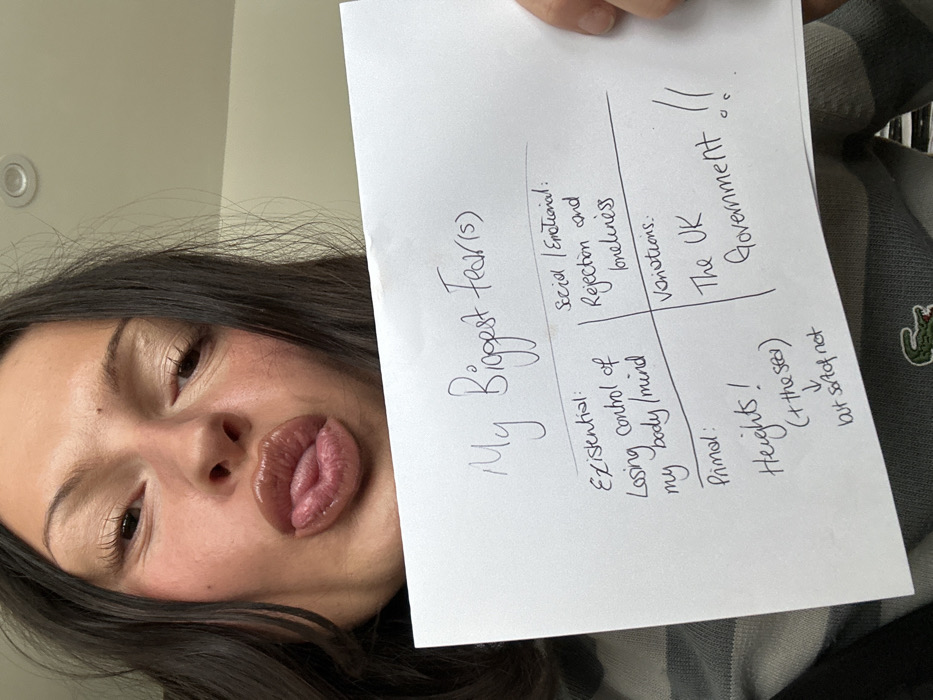 My Biggest Fear(s)
Existential:
Losing control of
my body/mind
Social/Emotional:
Rejection and
loneliness
Primal:
Heights!
(+ the sea)
↓
but sort of not
Variations:
The UK
Government !!